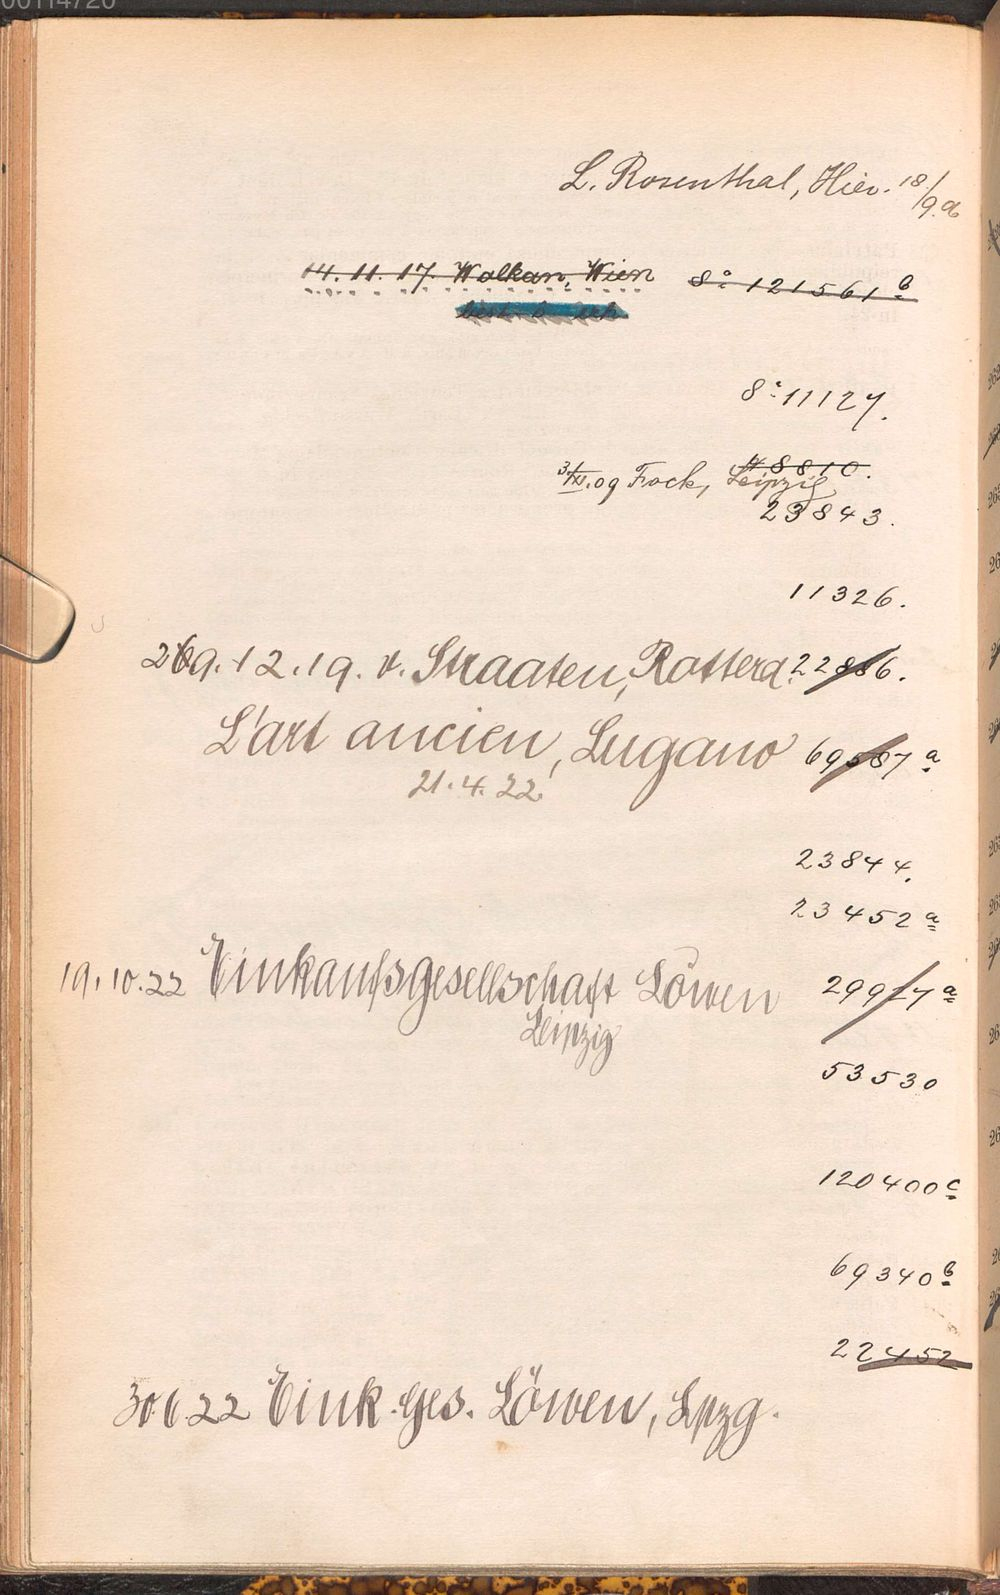 00114720
L. Rosenthal, Hier. 18/9.06
14. 11. 17. Wolkan, Wien 8° 121561 b
best. b erh.
8° 11127.
8810.
3/XI.09 Fock, Leipzig
23843.
11326.
29.12.19. v. Straaten, Rotterd. 22886.
L'art ancien, Lugano 69587 a
21.4.22
23844.
23452 a
19.10.22 Einkaufsgesellschaft Löwen 29927 a
Leipzig
53530
120400 c
69340 b
22452
30 6 22 Eink.ges. Löwen, Lpzg.